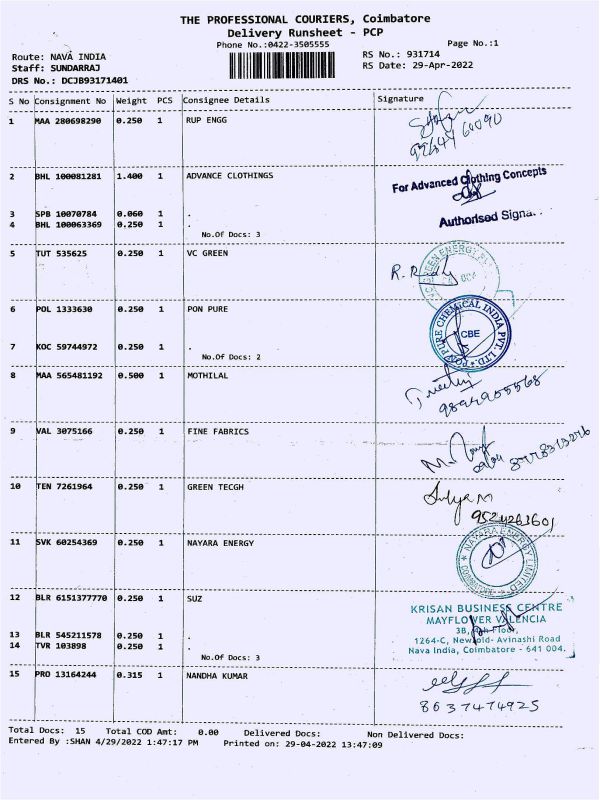 THE PROFESSIONAL COURIERS, Coimbatore
Delivery Runsheet - PCP
Phone No.:0422-3505555
Page No.:1
Route: NAVA INDIA
RS No.: 931714
Staff: SUNDARRAJ
RS Date: 29-Apr-2022
DRS No.: DCJB93171401
S No Consignment No Weight PCS Consignee Details Signature
1 MAA 280698290 0.250 1 RUP ENGG
2 BHL 100081281 1.400 1 ADVANCE CLOTHINGS
For Advanced Clothing Concepts
3 SPB 10070784 0.060 1 .
Authorised Signa.
4 BHL 100063369 0.250 1 .
No.Of Docs: 3
5 TUT 535625 0.250 1 VC GREEN
6 POL 1333630 0.250 1 PON PURE
PON PURE CHEMICAL INDIA PVT. LTD.
CBE
7 KOC 59744972 0.250 1 .
No.Of Docs: 2
8 MAA 565481192 0.500 1 MOTHILAL
9894955568
9 VAL 3075166 0.250 1 FINE FABRICS
10 TEN 7261964 0.250 1 GREEN TECGH
11 SVK 60254369 0.250 1 NAYARA ENERGY
NAYARA ENERGY LIMITED
12 BLR 6151377770 0.250 1 SUZ
KRISAN BUSINESS CENTRE
MAYFLOWER VALENCIA
13 BLR 545211578 0.250 1 .
1264-C, New/old- Avinashi Road
14 TVR 103898 0.250 1 .
Nava India, Coimbatore - 641 004.
No.Of Docs: 3
15 PRO 13164244 0.315 1 NANDHA KUMAR
8637474925
Total Docs: 15 Total COD Amt: 0.00 Delivered Docs: Non Delivered Docs:
Entered By :SHAN 4/29/2022 1:47:17 PM Printed on: 29-04-2022 13:47:09